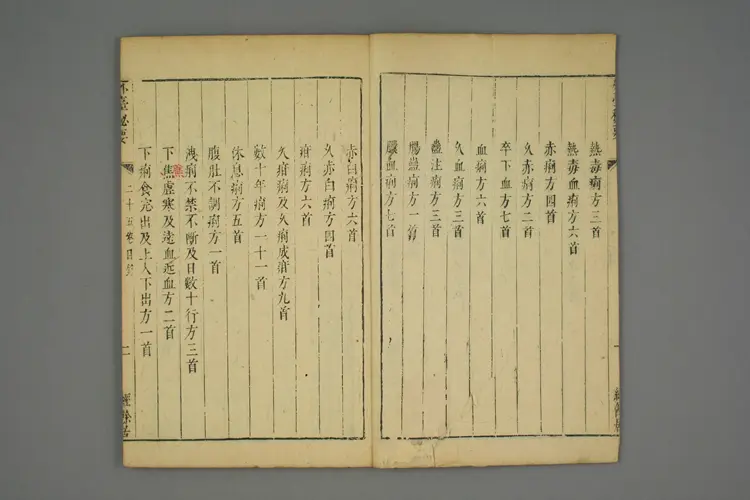 熱毒痢方三首
熱毒血痢方六首
赤痢方四首
久赤痢方二首
卒下血方七首
血痢方六首
久血痢方三首
蠱注痢方三首
腸蠱痢方一首
膿血痢方七首
赤白痢方六首
久赤白痢方四首
疳痢方六首
久疳痢及久痢成疳方九首
數十年痢方一十一首
休息痢方五首
腹肚不調痢方一首
洩痢不禁不斷及日數十行方三首
下焦虛寒及遠血近血方二首
下痢食完出及上入下出方一首
外臺祕要
二十五卷目錄
二
經餘居